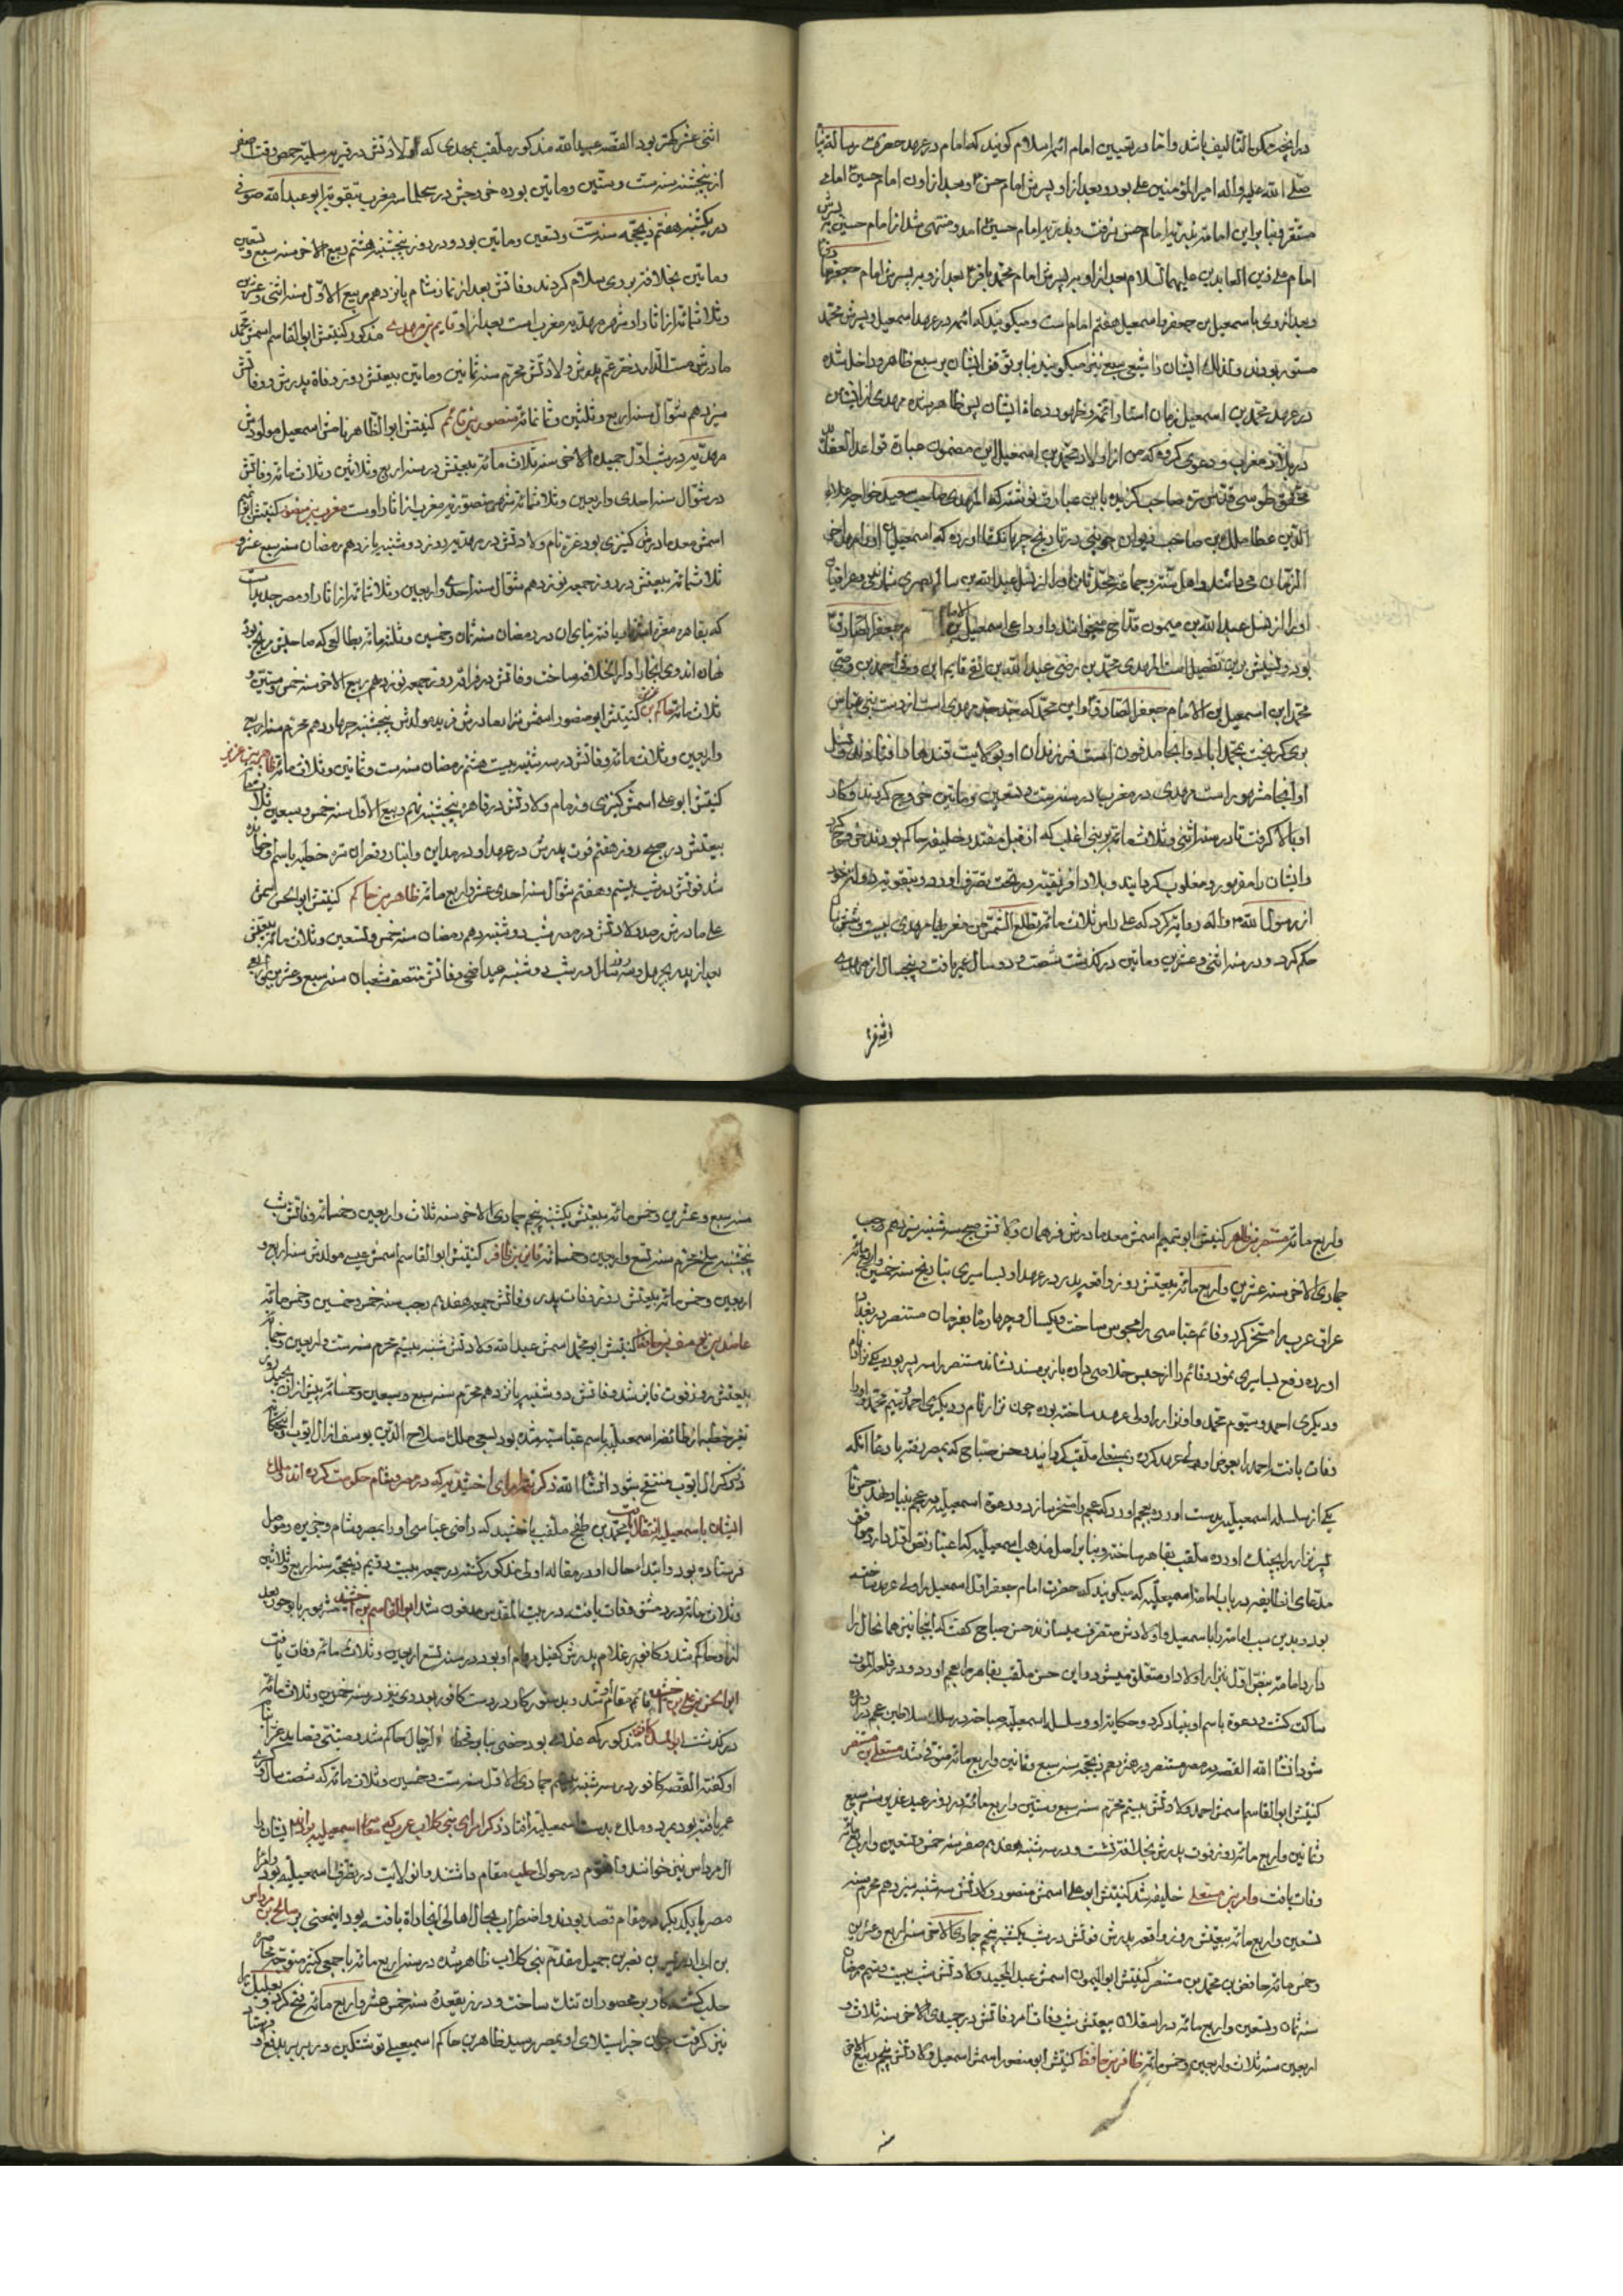 در آنچه ممکن التألیف باشد و اما در تعیین امام ائمه اسلام گویند که امام در عهد حضرت رسالة پناه
صلی الله علیه واله امیرالمؤمنین علی بود و بعد از او پسرش امام حسن و بعد از اون امام حسین امامی
مستقر و بنابراین امامت بذریه امام حسن نرفت و بذریه امام حسین آمد و منتهی شد از امام حسین به پسرش
امام علی زین العابدین علیهما السلام بعد از او بپسرش امام محمد باقر بعد از و بپسرش امام جعفر صادق
و بعد از وی با سمعیل بن جعفر و اسمعیل هفتم امام است و میگویند که ائمه در عهد اسمعیل و پسرش محمد
مستور بودند و لذلك ایشان را شیعی سبع نیز میگویند بنابر توقف ایشان بر سبع ظاهر و داخل شده
در عهد محمد بن اسمعیل زمان استتار ائمه و ظهور دعاة ایشان پس ظاهر شده مهدی از ایشان
در بلاد مغرب و دعوی کرد که من از اولاد محمد بن اسمعیل این مضمون عبارة قواعد العقاید
محقق طوسی قدس سره صاحب گزیده باین عبارت نوشته که المهدی صاحب سعید خواجه علاء
الدین عطا ملك بن صاحب دیوان جوینی در تاریخ جهانگشا آورده که اسمعیلیان او را مهدی آخر
الزمان می دانند و اهل سنت و جماعت او را از نسل عبدالله بن سالم بصری شمارند و عراقیان
او را از نسل عبدالله بن میمون قداح میخوانند و او داعی اسمعیل بن الامام جعفر الصادق
بود و نسبش برین تفصیل است المهدی محمد بن رضی عبدالله بن تقی قایم ابن وفی احمد بن وصی
محمد ابن اسمعیل بن الامام جعفر الصادق و این محمد که جد جد مهدی است از دست بنی عباس
بری گریخت بمحمد اباد و آنجا مدفون است فرزندان او بولایت قندهار افتادند و نسل
او آنجا مشهور است مهدی در مغرب در سنه ست و تسعین و مائتین خروج کرد بند و کار
او بالا گرفت تا در سنه اثنی و ثلاث مائه بر بنی اغلب که از قبل مقتدر خلیفه حاکم بودند خروج کرد
و ایشان را مقهور و مغلوب گردانید و بلاد افریقیه در تحت تصرف آورد و بتقویت دولت خود
از رسول الله واله روایت کرد که علی راس ثلاث مائه تطلع الشمس من مغربها مهدی بیست و شش سال
حکم کرد و در سنه اثنی و عشرین و مائتین درگذشت شصت و دو سال عمر یافت و پنجسال از مهدی
اثنی عشر
اثنی عشر کمتر بود القصه عبیدالله مذکور ملقب بمهدی که ولادتش در قریه سلیه حمص وقت صفر
از پنجشنبه سنه ست و ستین و مائتین بوده خروجش در سجلماسه مغرب بتقویت ابو عبدالله صوفی
در یکشنبه هفتم ذیحجه سنه ست و تسعین و مائتین بود و در روز پنجشنبه هشتم ربیع الاخر سنه سبع و تسعین
و مائتین بخلافت بر وی سلام کردند وفاتش بعد از نماز شام پانزدهم ربیع الاول سنه اثنی و عشرین
و ثلاثمائه از اثار او شهر مهدیه مغرب است بعد از او قایم بن مهدی مذکور کنیتش ابوالقاسم اسمش محمد
مادرش ست الدار دختر عم پدرش ولادتش محرم سنه ثمانین و مائتین بیعتش روز وفاة پدرش وفاتش
سیزدهم شوال سنه اربع و ثلثین و ثمانمائه منصور بن قائم کنیتش ابوالظاهر نامش اسمعیل مولودش
مهدیه در شب اول جمید الاخر سنه ثلاث مائه بیعتش در سنه اربع و ثلاثین و ثلاث مائه وفاتش
در شوال سنه احدی و اربعین و ثلاثمائه شهر منصوریه مغرب از اثار اوست معز بن منصور کنیتش ابو تمیم
اسمش معد مادرش کنیزی بود غره نام ولادتش در مهدیه روز دوشنبه یازدهم رمضان سنه سبع عشر
ثلاثمائه بیعتش در روز جمعه نوزدهم شوال سنه احدی و اربعین و ثلاثمائه از اثار او مصر جدید است
که بقاهره معزیه اشتهار یافته بنای ان در رمضان سنه ثمان و خمسین و ثلثمائه بطالعی که صاحبش مریخ بود
نهاده اند وی انجا را دار الخلافه ساخت وفاتش در قرافه روز جمعه نوزدهم ربیع الاخر سنه خمس و ستین و
ثلاث مائه حاکم بن عزیز کنیتش ابو منصور اسمش نزار مادرش فریده مولدش پنجشنبه چهاردهم محرم سنه اربع
واربعین و ثلاث مائه وفاتش در سه شنبه بیست هشتم رمضان سنه ست و ثمانین و ثلاث مائه حاکم بن عزیز
کنیتش ابو علی اسمش کنیزی و نام ولادتش در قاهره پنجشنبه نهم ربیع الاول سنه خمس و سبعین ثلاثمائه
بیعتش در صبح روز هفتم فوت پدرش در عهد او در مداین و انبار و نجران تره خطبه باسم او خوانده
شد فوتش در شب بیستم و هفتم شوال سنه احدی عشر و اربع مائه ظاهر بن حاکم کنیتش ابوالحسن اسمش
علی مادرش رصد ولادتش در مصر شب دوشنبه دهم رمضان سنه خمس و تسعین و ثلاث مائه بیعتش
بعد از پدر بچهل و سه روز سال در شب دوشنبه عید اضحی وفاتش منتصف شعبان سنه سبع و عشرین و اربع
واربع مائه مستنصر بن ظاهر کنیتش ابو تمیم اسمش معد مادرش فرهمان ولادتش صبح سه شنبه سیزدهم رجب
جمادی الاخر سنه عشرین واربع مائه بیعتش روز واقعه پدر در عهد او بساسیری بتاریخ سنه خمسین و اربع مائه
عراق عرب را مسخر کرد و قائم عباسی را محبوس ساخت و یکسال و چهار ماه بفرمان مستنصر در بغداد
آورده دفع بساسیری نمود و قائم را از حبس خلاصی داده باز بر مسند نشاند مستنصر را سه پسر بود یکی نزار نام
و دیگری احمد و سیوم محمد و او نزار را ولی عهد ساخته بود چون نزار قام و دیگری احمد و سیم محمد و او را
وفات یافت احمد را بعوض او ولی عهد کرده بمستعلی ملقب گردانید و حسن صباح که بمصر رفته بادعا آنکه
یکی از سلسله اسمعیلیه بدست آورده بعجم آورد که عجم را مسخر سازد و دعوة اسمعیلیه در عجم بنیاد نهد حسن نام
پسر نزار را بچنگ آورده ملقب بقاهر ساخته و بنابر اصل مذهب اسمعیلیه که اعتبار نص اول دارد موافق
مدعای انطایفه در باب امامة اسمعیلیه که میگویند که حضرت امام جعفر اول اسمعیل را ولی عهد ساخته
بود و بدین سبب امامت را با سمعیل و اولادش متعرف میسازند حسن صباح گفت که اینجا نیز همان حال را
دارد امامت بنص اول بنزار و اولاد او متعلق میشود و این حسن ملقب بقاهر را بعجم آورد و در قلعه الموت
ساکن گشت و دعوة باسم او بنیاد کرد و حکایت او و سلسله اسمعیلیه صباحیه در سلك سلاطین عجم در آورده
شود انشا الله القصه در مصر مستنصر در عز دهم ذیحجه سنه سبع و ثمانین واربع مائه متوفی شد مستعلی بن مستنصر
کنیتش ابوالقاسم اسمش احمد ولادتش بیستم محرم سنه سبع و ستین واربع مائه در روز عید غدیر سنه سبع
و ثمانین واربع مائه روز فوت پدرش بخلافت نشست و در سه شنبه هفدهم صفر سنه خمس و تسعین واربع مائه
وفات یافت وامر بن مستعلی خلیفه شد کنیتش ابو علی اسمش منصور ولادتش سه شنبه سیزدهم محرم سنه
تسعین واربع مائه بیعتش روز واقعه پدرش فوتش در شب یکشنبه پنجم جمادی الاخر سنه اربع و عشرین
و خمس مائه حافظ بن محمد بن مستنصر کنیتش ابوالمیمون اسمش عبدالمجید ولادتش شب بیست و سیم رمضان
سنه ثمان و تسعین واربع مائه در اسقلان بیعتش شب وفات امر وفاتش در جمیدی الاخر سنه ثلاث و
اربعین سنه ثلاث و اربعین و خمس مائه ظافر بن حافظ کنیتش ابو منصور اسمش اسمعیل ولادتش پنجم ربیع الاخر
سنه
سنه سبع و عشرین و خمس مائه بیعتش یکشنبه پنجم جمادی الاخر سنه ثلاث و اربعین و خمسمائه وفاتش شب
پنجشنبه سلخ محرم سنه تسع و اربعین و خمسمائه فایز بن ظافر کنیتش ابوالقاسم اسمش عیسی مولدش سنه اربع و
اربعین و خمس مائه بیعتش روز وفات پدر وفاتش جمعه هفدهم رجب سنه خمس و خمسین و خمس مائه
عاضد بن یوسف بن حافظ کنیتش ابو محمد اسمش عبدالله ولادتش شنبه بیستم محرم سنه ست و اربعین و خمسمائه
بیعتش روز فوت فایز شد وفاتش دوشنبه پانزدهم محرم سنه سبع و سبعین و خمسمائه پیش ازان بچند روز
تغیر خطبه از طائفه اسمعیلیه باسم عباسیه شده بود بسعی ملك صلاح الدین یوسف از ال ایوب انجا
ذکر ال ایوب منتقح شود انشا الله ذکر امرای اخشیدیه که در مصر و شام حکومت کرده اند و ملك
ایشان با سمعیلیه انتقال یافت محمد بن طغج ملقب باخشید که راضی عباسی او را بمصر و شام و جزیره و موصل
فرستاده بود و ابتدا حال او در مقاله اولی مذکور گشته در جمعه بیست دویم ذیحجه سنه اربع و ثلاثین
و ثلاث مائه در دمشق وفات یافت و در بیت المقدس مدفون شد ابوالقاسم بن اخشید مشهور بانوجور بعد
از او حاکم شد و کافور غلام پدرش کفیل مهام او بود در سنه تسع و اربعین و ثلاث مائه وفات یافت
ابوالحسن علی بن اخشید قائم مقام او شد و بدستور کار در دست کافور بود وی نیز در سنه خمسین و ثلاث مائه
درگذشت ابوالمسك کافور مذکور که غلامی بود خصی بنابر قحط الرجال حاکم شد و متنبی قصاید غرا بنام
او گفته القصه کافور در سه شنبه بیستم جمادی الاول سنه ست و خمسین و ثلاث مائه که شصت سال و کسری
عمر یافته بود بمرد و ملك بدست اسمعیلیه افتاد ذکر امرای بنی کلاب عرب که معاصر اسمعیلیه بودند ایشان را
ال مرداس نیز خوانند و این قوم در حوالی حلب مقام داشتند و ان ولایت در تصرف اسمعیلیه بود و امراء
مصر با یکدیگر در مقام قصد بودند و اضطراب بحال اهالی انجا راه یافته بود اینمعنی بر صالح بن مرداس
بن ادریس بن نصر بن جمیل مقدم بنی کلاب ظاهر شده در سنه اربع مائه با جمعی کثیر متوجه محاصره
حلب گشته کار بر محصوران تنك ساخت و در ذیقعده سنه خمس عشر واربع مائه فتح کرد و بعلبك را
نیز گرفت چون خبر استیلای او بمصر رسید ظاهر بن حاکم اسمعیلی نوشتکین دزبری را بدفع او فرستاد